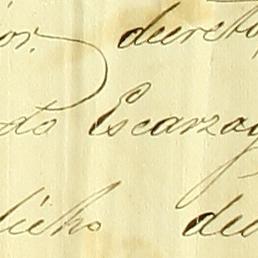 or. decreto
do Escarzag
dicho dec